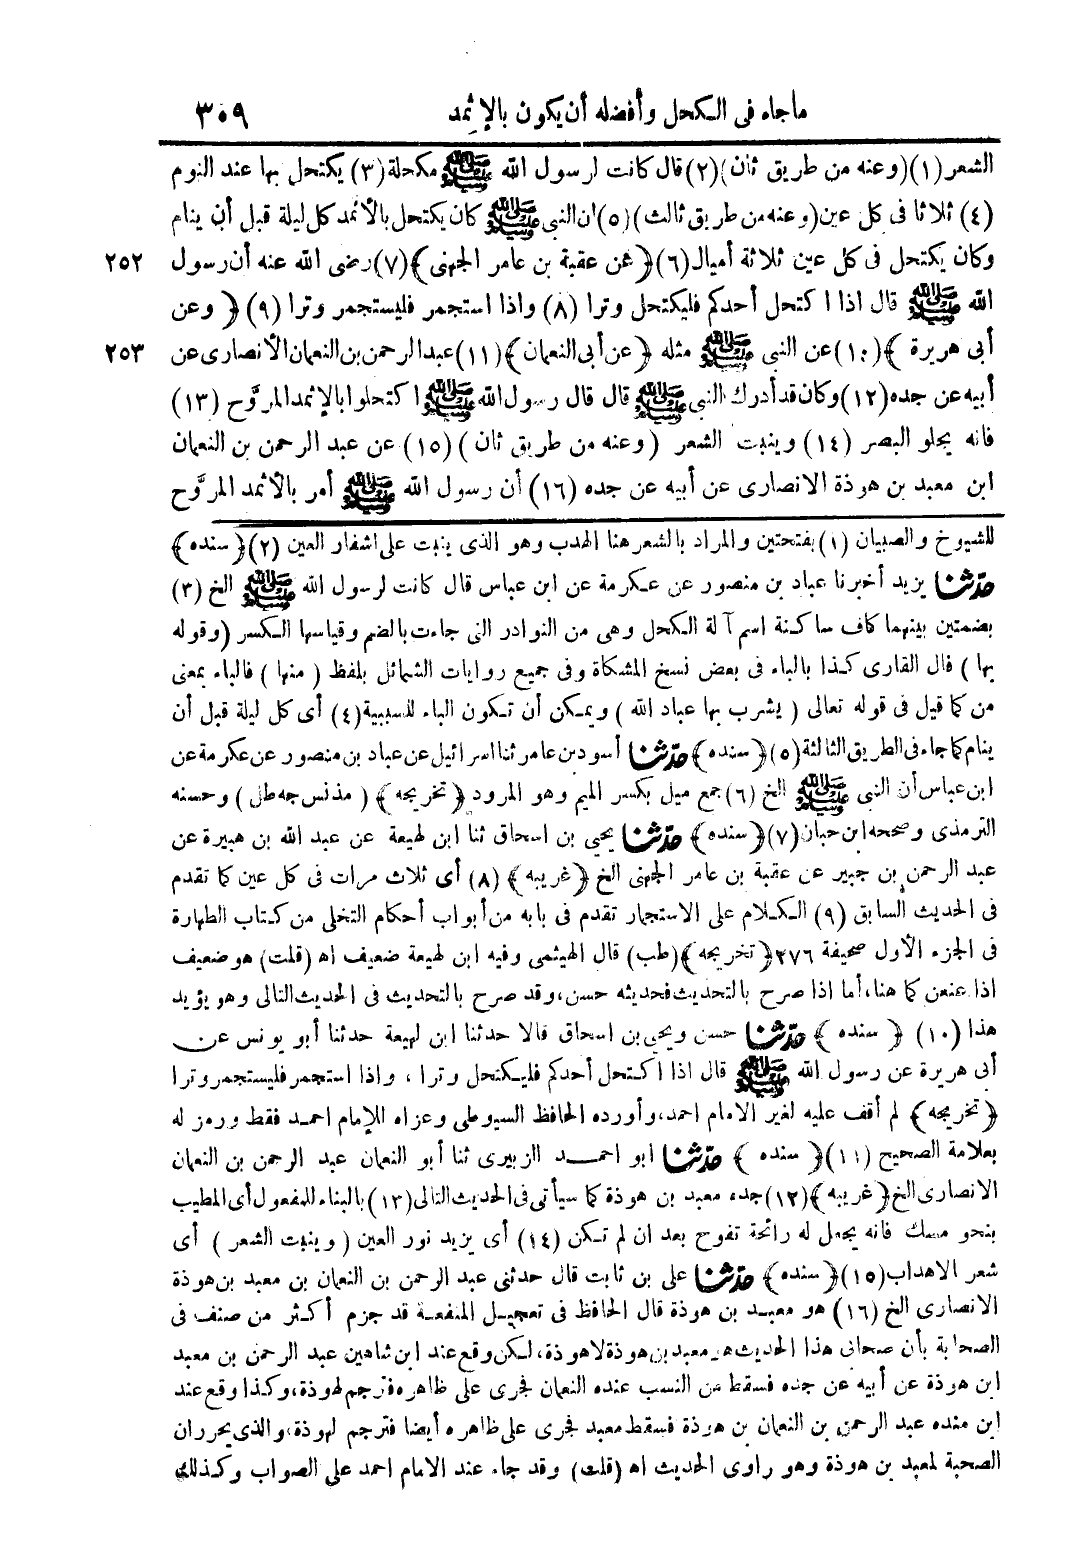 ماجاء فى الكحل وأفضله أن يكون بالإثمد ٣٠٩
الشعر (١) (وعنه من طريق ثان) (٢) قال كانت لرسول الله ﷺ مكحلة (٣) يكتحل بها عند النوم
(٤) ثلاثا فى كل عين (وعنه من طريق ثالث) (٥) ان النبى ﷺ كان يكتحل بالأثمد كل ليلة قبل أن ينام
وكان يكتحل فى كل عين ثلاثة أميال (٦) ﴿عن عقبة بن عامر الجهنى﴾ (٧) رضى الله عنه أن رسول ٢٥٢
الله ﷺ قال اذا اكتحل أحدكم فليكتحل وترا (٨) واذا استجمر فليستجمر وترا (٩) ﴿وعن
أبى هريرة﴾ (١٠) عن النبى ﷺ مثله ﴿عن أبى النعمان﴾ (١١) عبد الرحمن بن النعمان الأنصارى عن ٢٥٣
أبيه عن جده (١٢) وكان قد أدرك النبى ﷺ قال قال رسول الله ﷺ اكتحلوا بالإثمد المروَّح (١٣)
فانه يجلو البصر (١٤) وينبت الشعر (وعنه من طريق ثان) (١٥) عن عبد الرحمن بن النعمان
ابن معبد بن هوذة الانصارى عن أبيه عن جده (١٦) أن رسول الله ﷺ أمر بالأثمد المروَّح
للشيوخ والصبيان (١) بفتحتين والمراد بالشعر هنا الهدب وهو الذى ينبت على اشفار العين (٢) ﴿سنده﴾
حدّثنا يزيد أخبرنا عباد بن منصور عن عكرمة عن ابن عباس قال كانت لرسول الله ﷺ الخ (٣)
بضمتين بينهما كاف ساكنة اسم آلة الكحل وهى من النوادر التى جاءت بالضم وقياسها الكسر (وقوله
بها) قال القارى كذا بالباء فى بعض نسخ المشكاة وفى جميع روايات الشمائل بلفظ (منها) فالباء بمعنى
من كما قيل فى قوله تعالى (يشرب بها عباد الله) ويمكن أن تكون الباء للسببية (٤) أى كل ليلة قبل أن
ينام كما جاء فى الطريق الثالثة (٥) ﴿سنده﴾ حدّثنا أسود بن عامر ثنا اسرائيل عن عباد بن منصور عن عكرمة عن
ابن عباس أن النبى ﷺ الخ (٦) جمع ميل بكسر الميم وهو المرود ﴿تخريجه﴾ (مذ نس جه طل) وحسنه
الترمذى وصححه ابن حبان (٧) ﴿سنده﴾ حدّثنا يحيى بن اسحاق ثنا ابن لهيعة عن عبد الله بن هبيرة عن
عبد الرحمن بن جبير عن عقبة بن عامر الجهنى الخ ﴿غريبه﴾ (٨) أى ثلاث مرات فى كل عين كما تقدم
فى الحديث السابق (٩) الكلام على الاستجمار تقدم فى بابه من أبواب أحكام التخلى من كتاب الطهارة
فى الجزء الأول صحيفة ٢٧٦ ﴿تخريجه﴾ (طب) قال الهيثمى وفيه ابن لهيعة ضعيف اه (قلت) هو ضعيف
اذا عنعن كما هنا، أما اذا صرح بالتحديث فحديثه حسن، وقد صرح بالتحديث فى الحديث التالى وهو يؤيد
هذا (١٠) ﴿سنده﴾ حدّثنا حسن ويحيى بن اسحاق قالا حدثنا ابن لهيعة حدثنا أبو يونس عن
أبى هريرة عن رسول الله ﷺ قال اذا اكتحل أحدكم فليكتحل وترا، واذا استجمر فليستجمر وترا
﴿تخريجه﴾ لم أقف عليه لغير الامام احمد، وأورده الحافظ السيوطى وعزاه للإمام احمد فقط ورمز له
بعلامة الصحيح (١١) ﴿سنده﴾ حدّثنا ابو احمد الزبيرى ثنا أبو النعمان عبد الرحمن بن النعمان
الانصارى الخ ﴿غريبه﴾ (١٢) جده معبد بن هوذة كما سيأتى فى الحديث التالى (١٣) بالبناء للمفعول أى المطيب
بنحو مسك فانه يجعل له رائحة تفوح بعد ان لم تكن (١٤) أى يزيد نور العين (وينبت الشعر) أى
شعر الاهداب (١٥) ﴿سنده﴾ حدّثنا على بن ثابت قال حدثنى عبد الرحمن بن النعمان بن معبد بن هوذة
الانصارى الخ (١٦) هو معبد بن هوذة قال الحافظ فى تعجيل المنفعة قد جزم أكثر من صنف فى
الصحابة بأن صحابى هذا الحديث هو معبد بن هوذة لا هوذة، لكن وقع عند ابن شاهين عبد الرحمن بن معبد
ابن هوذة عن أبيه عن جده فسقط من النسب عنده النعمان فجرى على ظاهره فترجم لهوذة، وكذا وقع عند
ابن منده عبد الرحمن بن النعمان بن هوذة فسقط معبد فجرى على ظاهره أيضا فترجم لهوذة، والذى يحرر ان
الصحبة لمعبد بن هوذة وهو راوى الحديث اه (قلت) وقد جاء عند الامام احمد على الصواب وكذلك